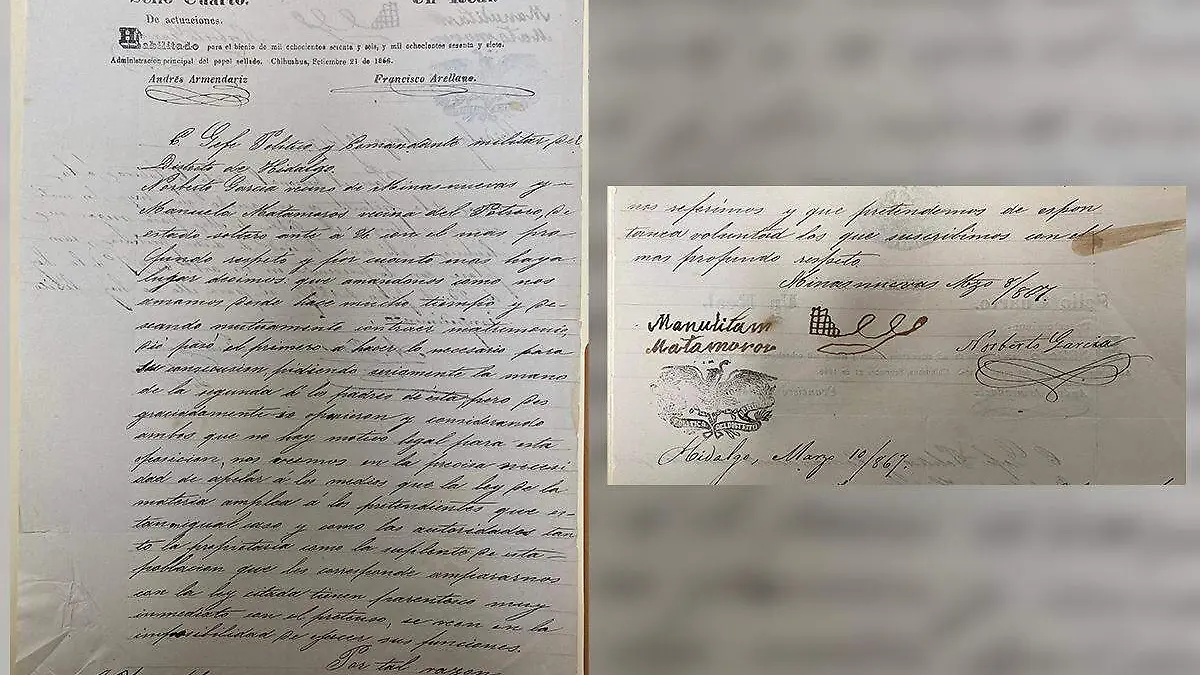 Sello Cuarto. Un Real.
De actuaciones.
Habilitado para el bienio de mil ochocientos sesenta y seis, y mil ochocientos sesenta y siete.
Administracion principal del papel sellado. Chihuahua, Setiembre 21 de 1866.
Andrés Armendariz Francisco Arellano.
C. Gefe Politico y Comandante militar del
Distrito de Hidalgo.
Norberto Garcia vecino de Minasnuevas y
Manuela Matamoros vecina del Potrero, de
estado soltero ante U. con el mas pro
fundo respeto y por cuanto mas haya
lugar decimos: que amandonos como nos
amamos desde hace mucho tiempo y de
seando mutuamente contraer matrimonio
pasó el primero á hacer lo necesario para
su consecucion, pidiendo seriamente la mano
de la segunda á los padres de esta, pero des
graciadamente se opusieron y considerando
ambos que no hay motivo legal para esta
oposicion, nos vemos en la precisa necesi
dad de apelar á los medios que la ley de la
materia amplea á los pretendientes que es
tan en igual caso y como las autoridades tan
to la propietaria como la suplente de esta
poblacion que les corresponde ampararnos
con la ley citada tienen parentesco muy
inmediato con el , se vean en la
imposibilidad de ejercer sus funciones.
Por tal razon
nos referimos y que pretendemos de espon
tanea voluntad los que suscribimos con el
mas profundo respeto.
Minasnuevas Mzo 8/867.
Manulitam
Matamoros
Norberto Garcia
POLITICO DEL DISTRITO
Hidalgo, Marzo 10/867.